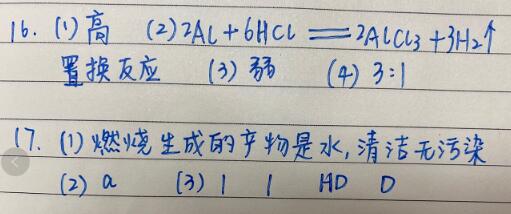 16. (1) 高 (2) 2Al + 6HCl ══ 2AlCl₃ + 3H₂↑
置换反应 (3) 弱 (4) 3:1
17. (1) 燃烧生成的产物是水, 清洁无污染
(2) a (3) 1 1 HD D